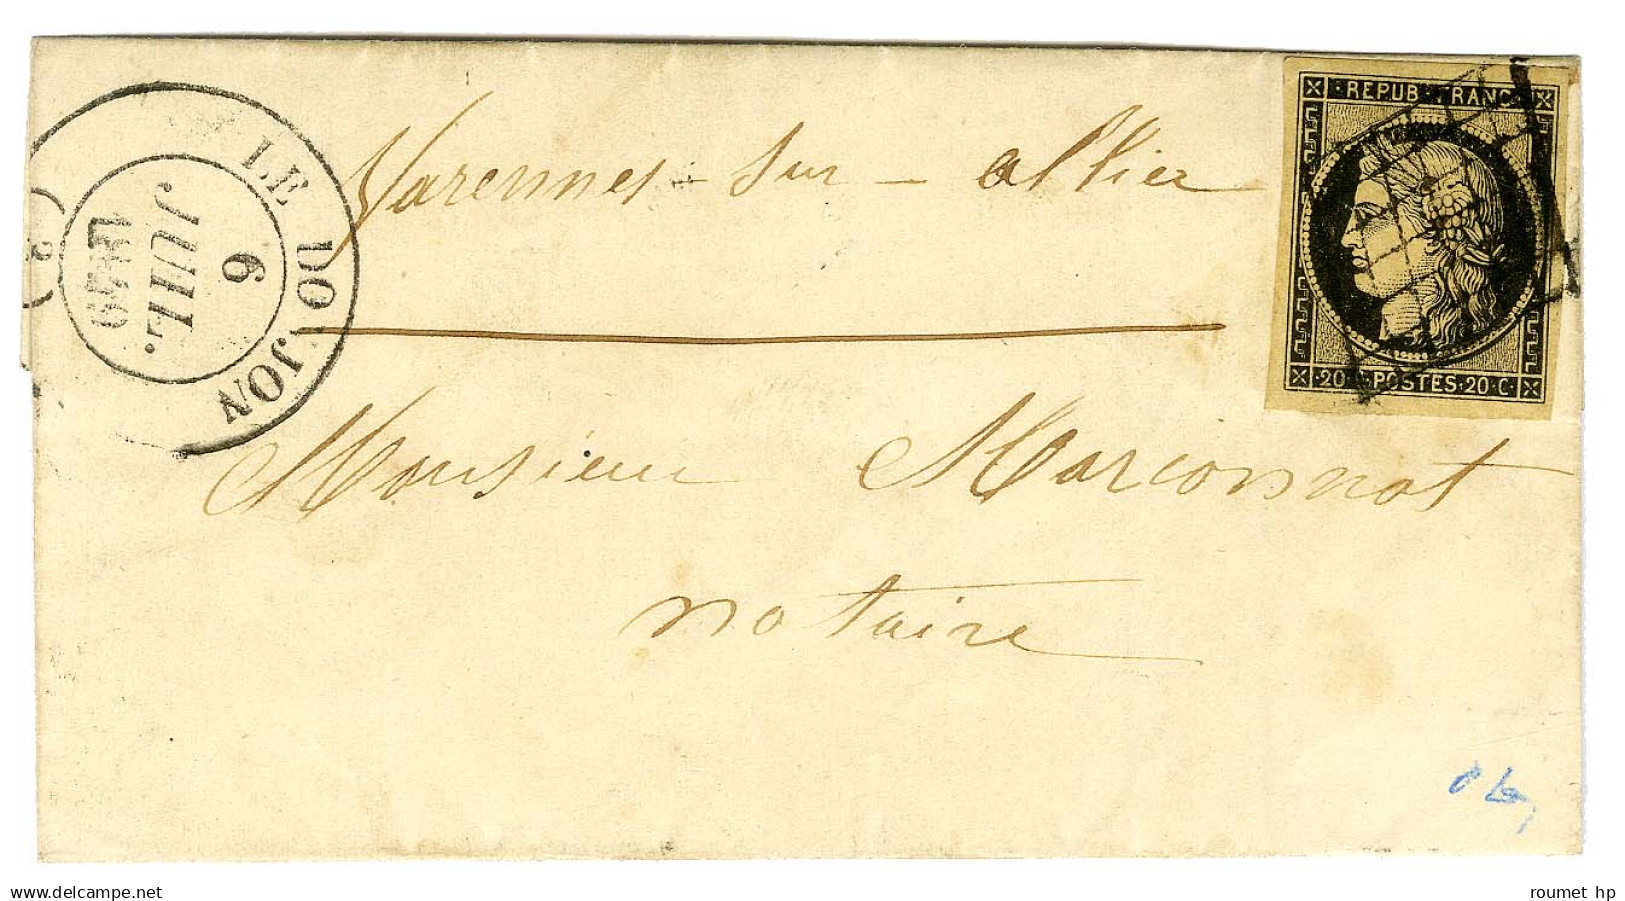 LE DONJON
6
JUIL.
1849
(2)
REPUB. FRANC.
20 POSTES 20 C.
Varennes-sur-allier
Monsieur Marconnot
notaire
delcampe.net
roumet hp